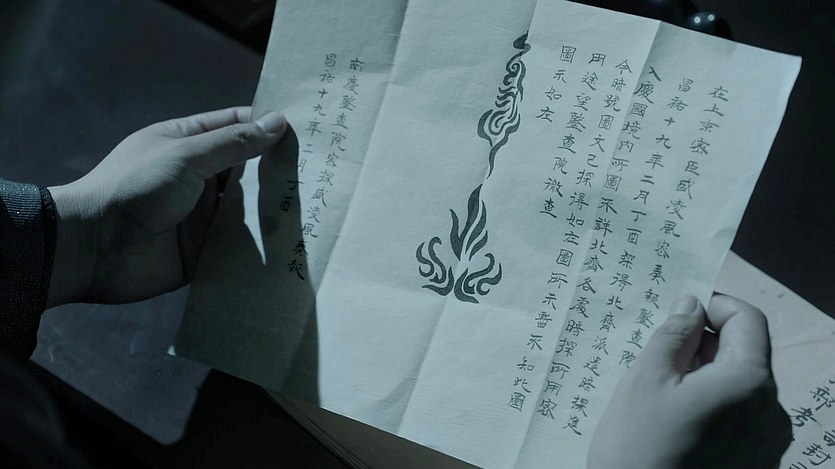 在上京密臣盛凌風密奏報鑒查院
昌祐十九年二月丁酉探得北齊派遣暗探急
入慶國境內所圖示詳北齊各處暗探所用密
今暗號圖文已探得如左圖所示暫不知此圖
用途望鑒查院徹查
圖示如左
南慶鑒查院密探盛凌風
昌祐十九年二月丁酉 奏報